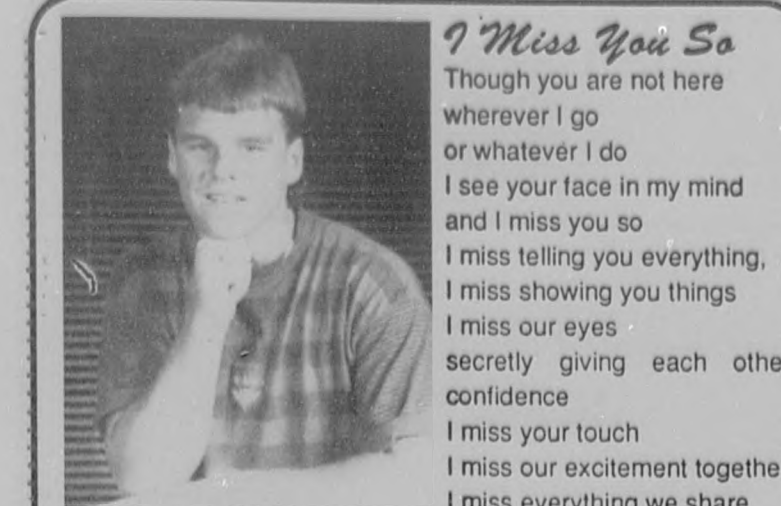 I Miss You So
Though you are not here
wherever I go
or whatever I do
I see your face in my mind
and I miss you so
I miss telling you everything,
I miss showing you things
I miss our eyes
secretly giving each othe
confidence
I miss your touch
I miss our excitement togethe
I miss everything we share